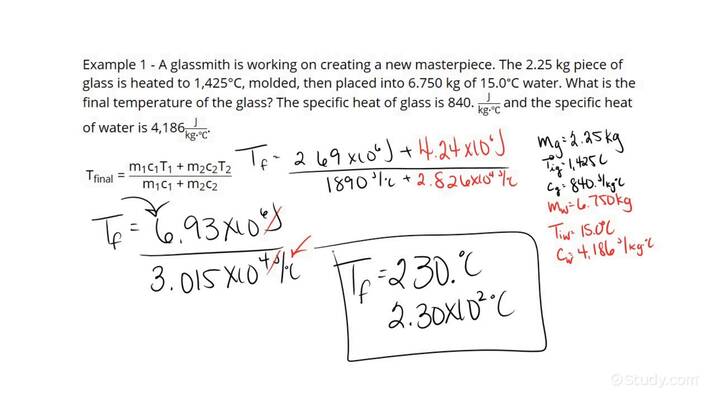 Example 1 - A glassmith is working on creating a new masterpiece. The 2.25 kg piece of
glass is heated to 1,425°C, molded, then placed into 6.750 kg of 15.0°C water. What is the
final temperature of the glass? The specific heat of glass is 840. J/kg·°C and the specific heat
of water is 4,186 J/kg·°C.
T_final = (m₁c₁T₁ + m₂c₂T₂)/(m₁c₁ + m₂c₂)
T_f = (2.69x10⁶J + 4.24x10⁵J)/(1890 J/°C + 2.826x10⁴ J/°C)
m_g = 2.25kg
T_ig = 1,425°C
c_g = 840. J/kg°C
m_w = 6.750kg
T_iw = 15.0°C
C_w = 4,186 J/kg·°C
T_f = (6.93x10⁶J)/(3.015x10⁴ J/°C)
T_f = 230.°C
2.30x10²°C
Study.com